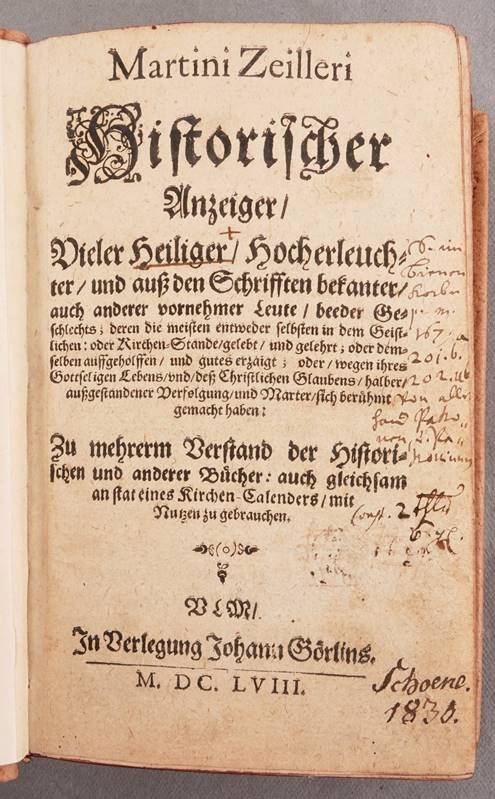 Martini Zeilleri
Historischer
Anzeiger/
Vieler Heiliger/ Hocherleuch-
ter/ und auß den Schrifften bekanter/
auch anderer vornehmer Leute/ beeder Ge-
schlechts; deren die meisten entweder selbsten in dem Geist-
lichen: oder Kirchen-Stande/gelebt/ und gelehrt; oder dem-
selben auffgeholffen/ und gutes erzaigt; oder/ wegen ihres
Gottseligen Lebens/vnd/deß Christlichen Glaubens/ halber/
außgestandener Verfolgung/ und Marter/sich berühmt
gemacht haben:
Zu mehrerm Verstand der Histori-
schen und anderer Bücher: auch gleichsam
an stat eines Kirchen-Calenders/ mit
Nutzen zu gebrauchen.
(o)
VLM/
In Verlegung Johann Görlins.
M. DC. LVIII.
S. im
167.
201. b.
202.
Von aller
hand
2
Schoene.
1830.